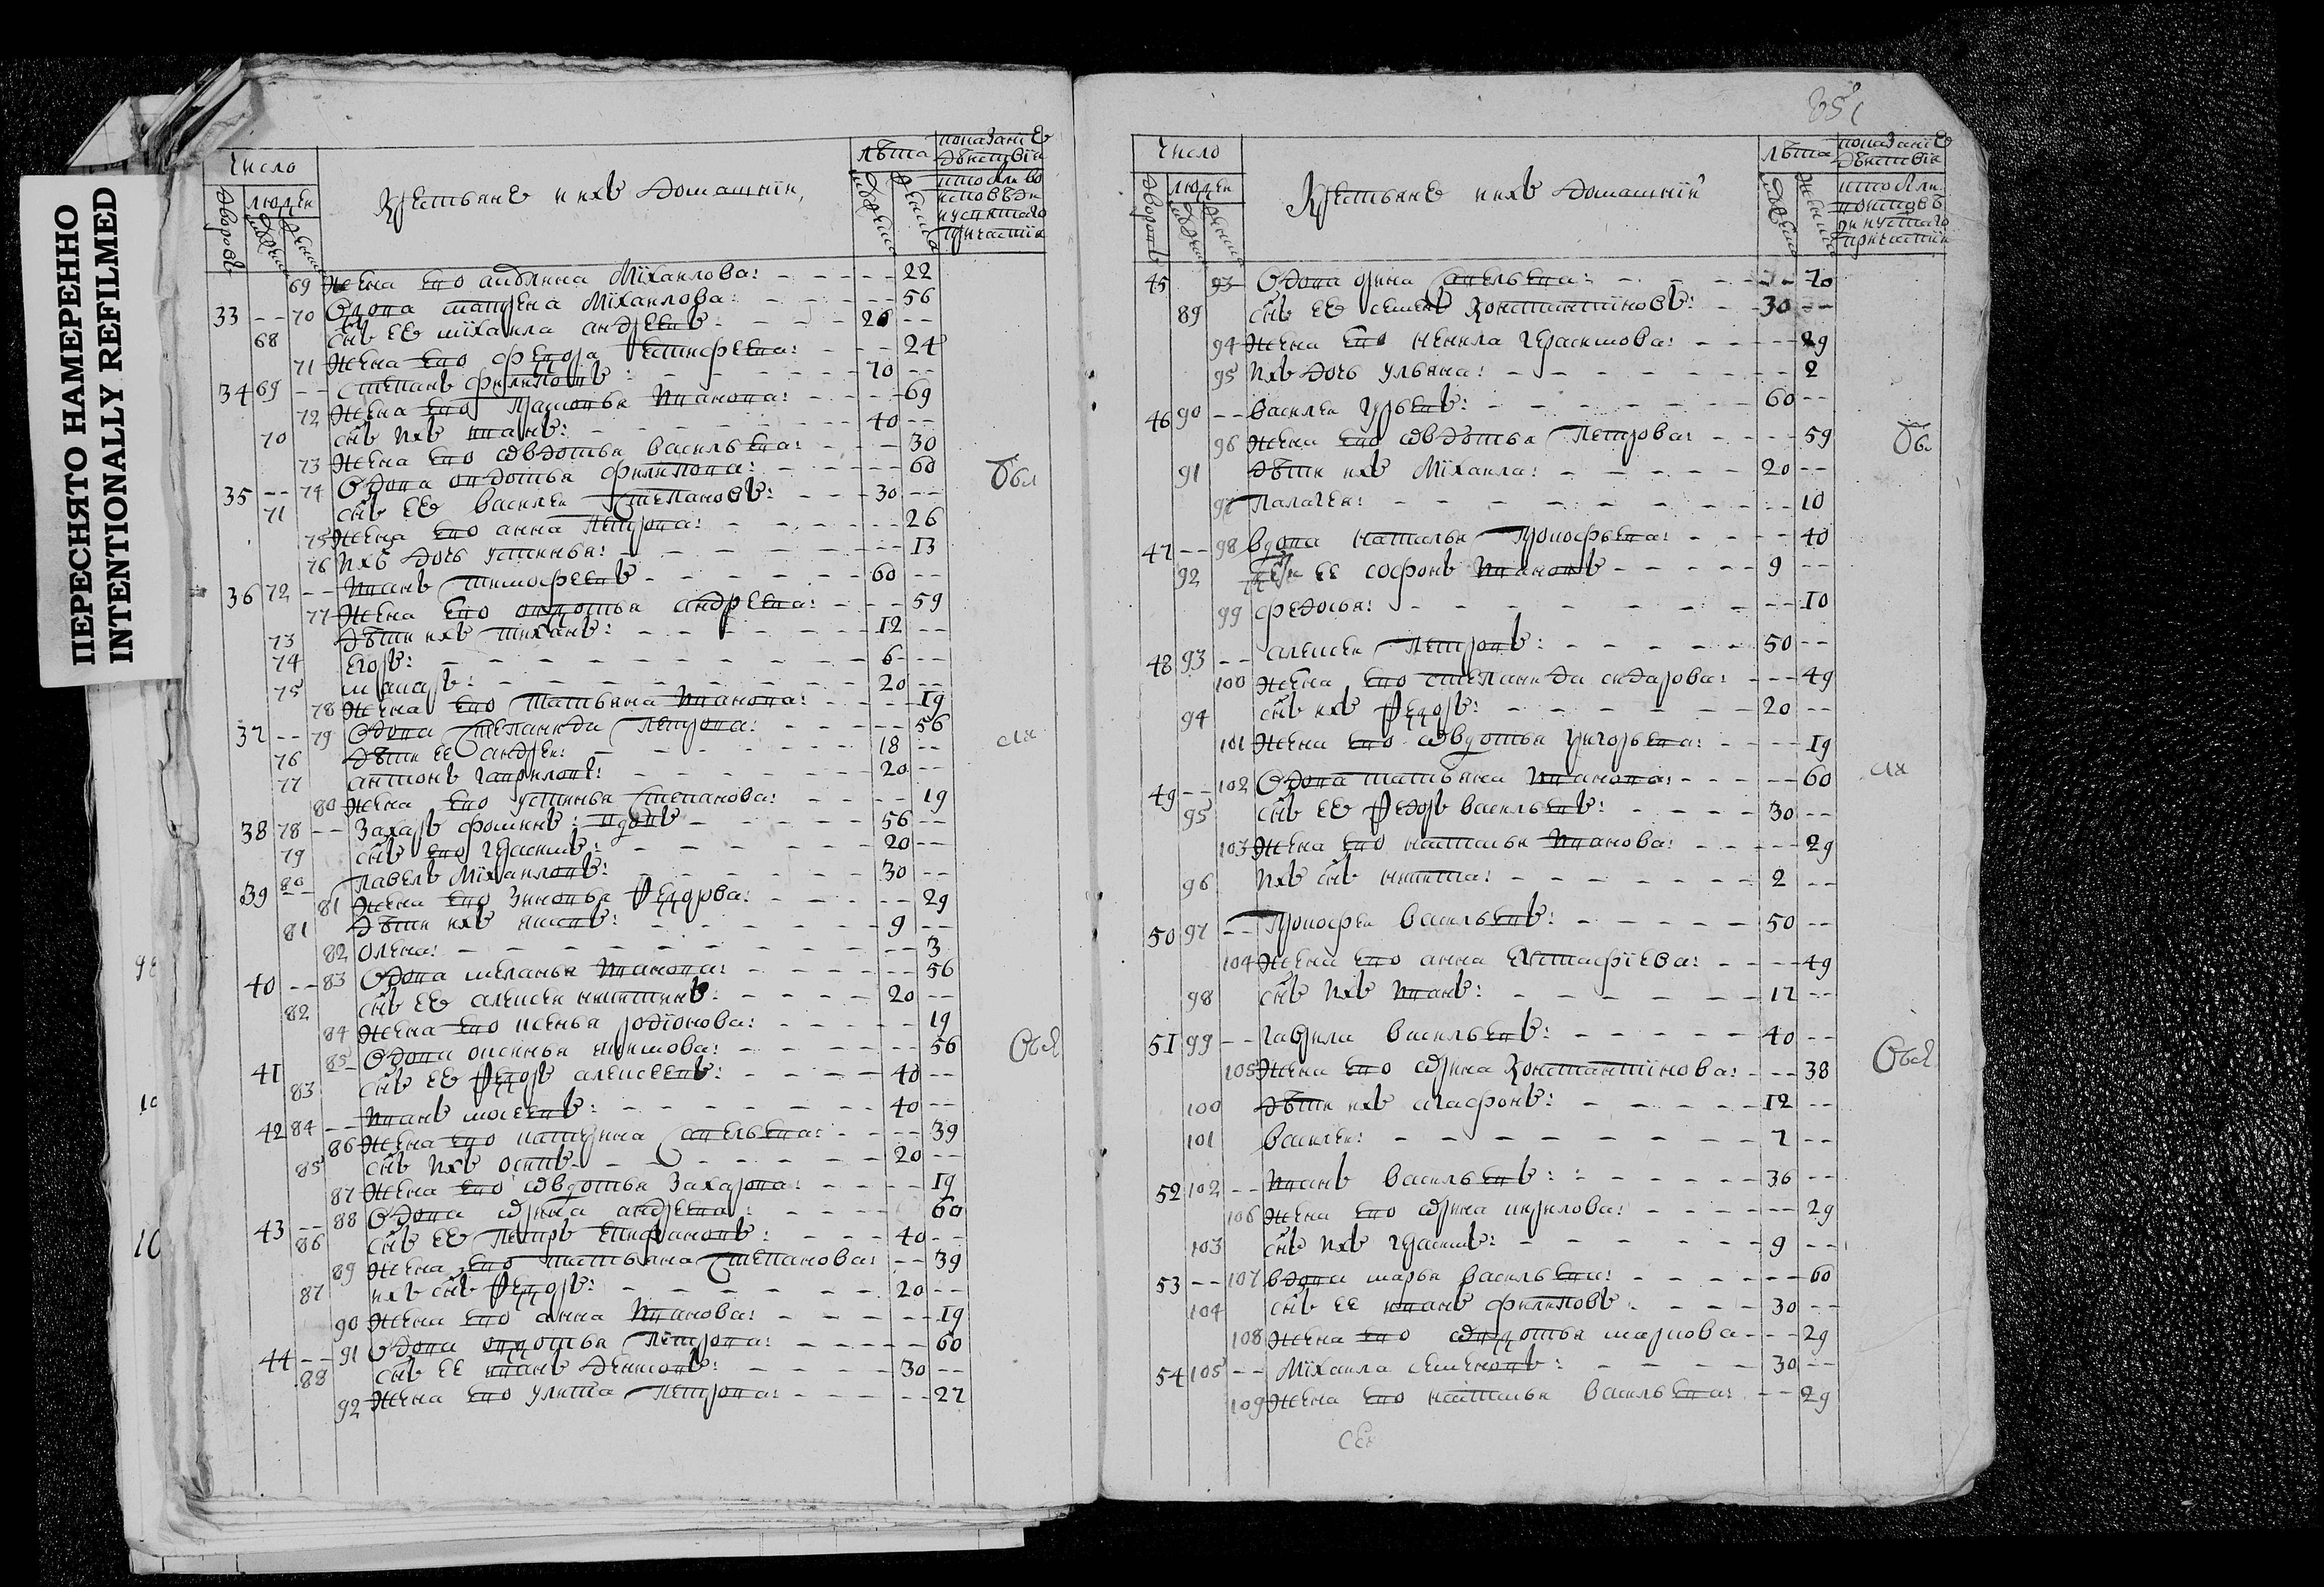 ПЕРЕСНЯТО НАМЕРЕННО
INTENTIONALLY REFILMED
число лѣта показание действия
дворовъ людей крестьяне и ихъ домашнии
69 жена ево Михаилова: 22
33 -- 70 вдова матрена Михаилова: 56
68 сын ее михаила андреевъ 26 --
71 жена ево федора 24
34 69 -- степанъ филиповъ 70 --
72 жена ево прасковья иванова: 69
70 сын ихъ иванъ: 40 --
73 жена ево овдотья васильева: 30
35 -- 74 вдова овдотья филипова: 60
71 сын ее василеи степановъ: 30 --
75 жена ево анна петрова: 26
76 ихъ дочь устинья: 13
36 72 -- иванъ тимофеевъ 60 --
77 жена ево овдотья андреева: 59
73 дѣти ихъ тиханъ: 12 --
74 егоръ: 6 --
75 макаръ: 20 --
78 жена ево татьяна иванова: 19
37 -- 79 вдова степанида петрова: 56
76 дѣти ее андреи: 18 --
77 антонъ гаврилов: 20 --
80 жена ево устинья степанова: 19
38 78 -- захаръ фоминъ: вдовъ 56 --
79 сын ево герасимъ: 20 --
39 80 -- павелъ Михаиловъ: 30 --
81 жена ево зиновья федорова: 29
81 дѣти ихъ яковъ: 9 --
82 олена: 3
40 -- 83 вдова меланья иванова: 56
82 сын ее алексеи никитинъ: 20 --
84 жена ево ксенья родионова: 19
41 85 вдова оксинья якимова: 56
83 сын ее федоръ алексеевъ: 40 --
42 84 -- иванъ мосеевъ: 40 --
86 жена ево катерина савельева: 39
85 сын ихъ осипъ 20 --
87 жена ево овдотья захарова: 19
43 -- 88 вдова орина андреева: 60
86 сын ее петръ епифановъ: 40 --
89 жена ево татьяна степанова: 39
87 ихъ сын федоръ: 20 --
90 жена ево анна иванова: 19
44 -- 91 вдова овдотья петрова: 60
88 сын ее иванъ денисовъ: 30 --
92 жена ево улита петрова: 27
число лѣта показание действия
дворовъ людей крестьяне и ихъ домашнии
45 93 вдова орина савельева: 70
89 сын ее семенъ константиновъ: 30 --
94 жена ево ненила герасимова: 29
95 ихъ дочь ульяна: 2
46 90 -- василеи гурьевъ: 60 --
96 жена ево овдотья петрова: 59
91 дѣти ихъ Михаила: 20 --
97 палагея: 10
47 -- 98 вдова наталья прокофьева: 40
92 дѣти ее софонъ ивановъ 9 --
99 федосья: 10
48 93 -- алексеи петровъ: 50 --
100 жена ево степанида сидарова: 49
94 сын ихъ федоръ: 20 --
101 жена ево овдотья григорьева: 19
49 -- 102 вдова татьяна иванова: 60
95 сын ее федоръ васильевъ: 30 --
103 жена ево наталья иванова: 29
96 ихъ сын никита: 2 --
50 97 -- прокофеи васильевъ: 50 --
104 жена ево анна евстафиева: 49
98 сын ихъ иванъ: 17 --
51 99 -- гаврила васильевъ: 40 --
105 жена ево орина константинова: 38
100 дѣти ихъ агафонъ: 12 --
101 василеи: 7 --
52 102 -- иванъ васильевъ: 36 --
106 жена ево орина кирилова: 29
103 сын ихъ герасимъ: 9 --
53 -- 107 вдова марья васильева: 60
104 сын ее иванъ филиповъ: 30 --
108 жена ево овдотья маркова 29
54 105 -- Михаила семеновъ: 30 --
109 жена ево наталья васильева: 29